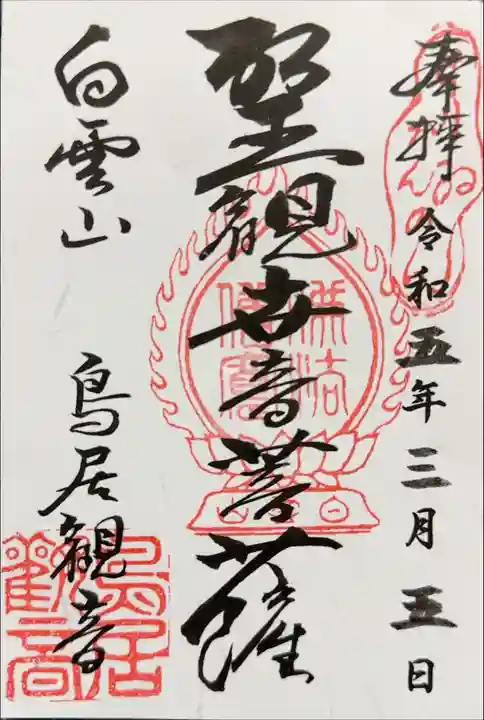 奉拝 令和五年三月五日
聖観世音菩薩
白雲山 鳥居観音
佛法僧寳
鳥居観音